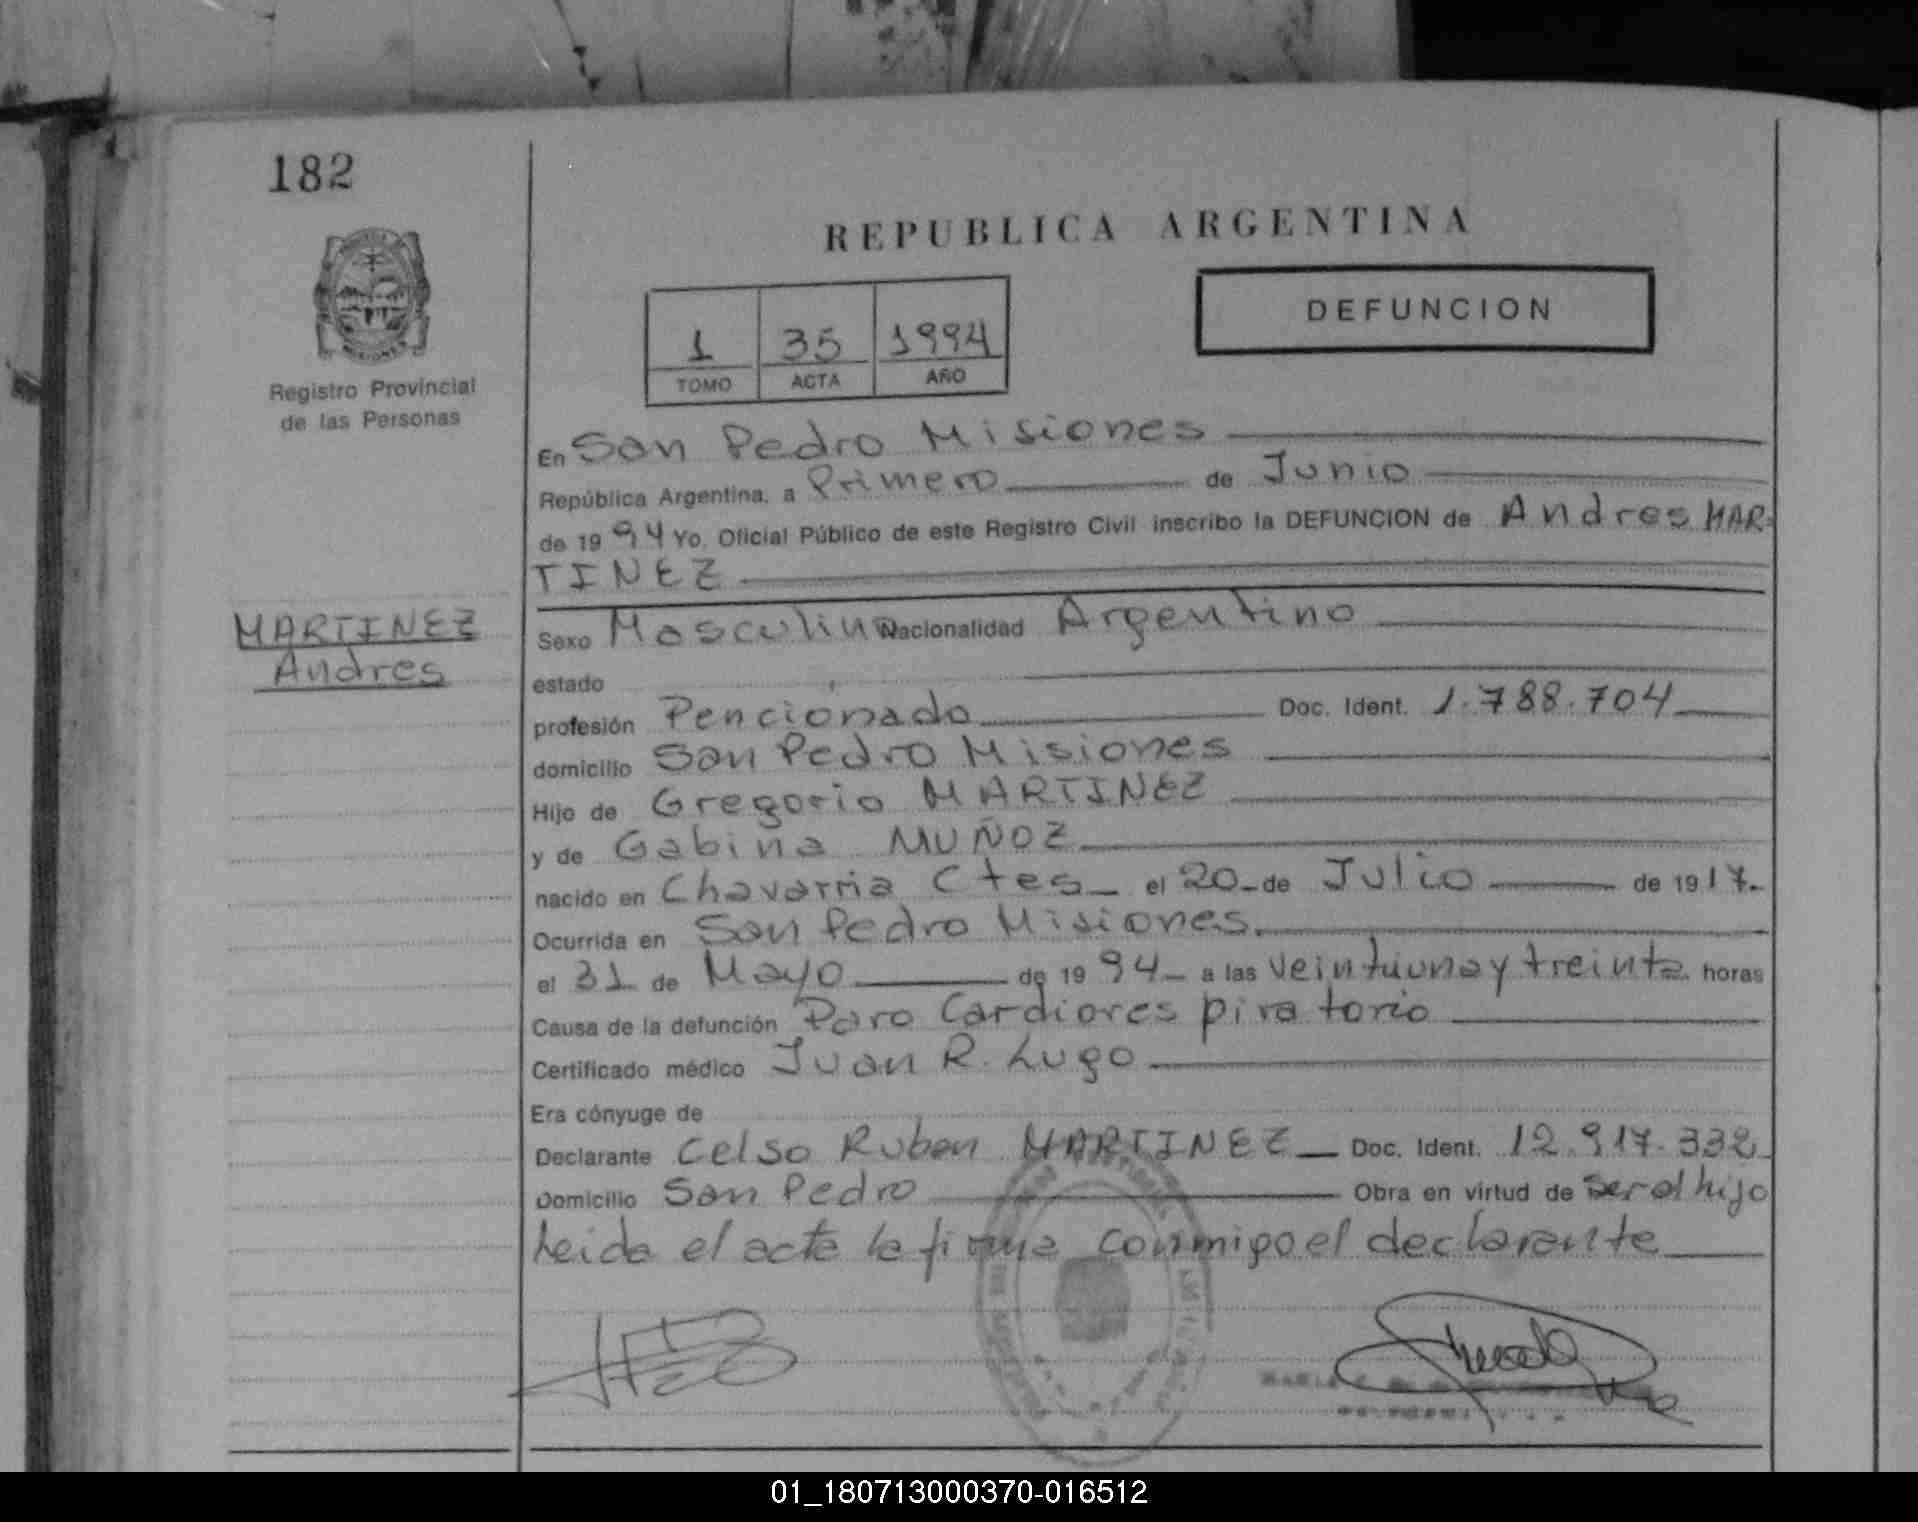 182
REPUBLICA ARGENTINA
MISIONES
Registro Provincial
de las Personas
1 35 1994
TOMO ACTA AÑO
DEFUNCION
En San Pedro Misiones
República Argentina, a Primero de Junio
de 1994 Yo, Oficial Público de este Registro Civil inscribo la DEFUNCION de Andres MAR-
TINEZ
MARTINEZ
Andres
Sexo Masculino Nacionalidad Argentino
estado
profesión Pencionado Doc. Ident. 1.788.704
domicilio San Pedro Misiones
Hijo de Gregorio MARTINEZ
y de Gabina MUÑOZ
nacido en Chavarria Ctes el 20 de Julio de 1917.
Ocurrida en San Pedro Misiones.
el 31 de Mayo de 1994 a las veintiuna y treinta horas
Causa de la defunción Paro Cardiorespiratorio
Certificado médico Juan R. Lugo
Era cónyuge de
Declarante Celso Ruben MARTINEZ Doc. Ident. 12.917.332
Domicilio San Pedro Obra en virtud de ser el hijo
Leida el acta la firma conmigo el declarante
01_180713000370-016512